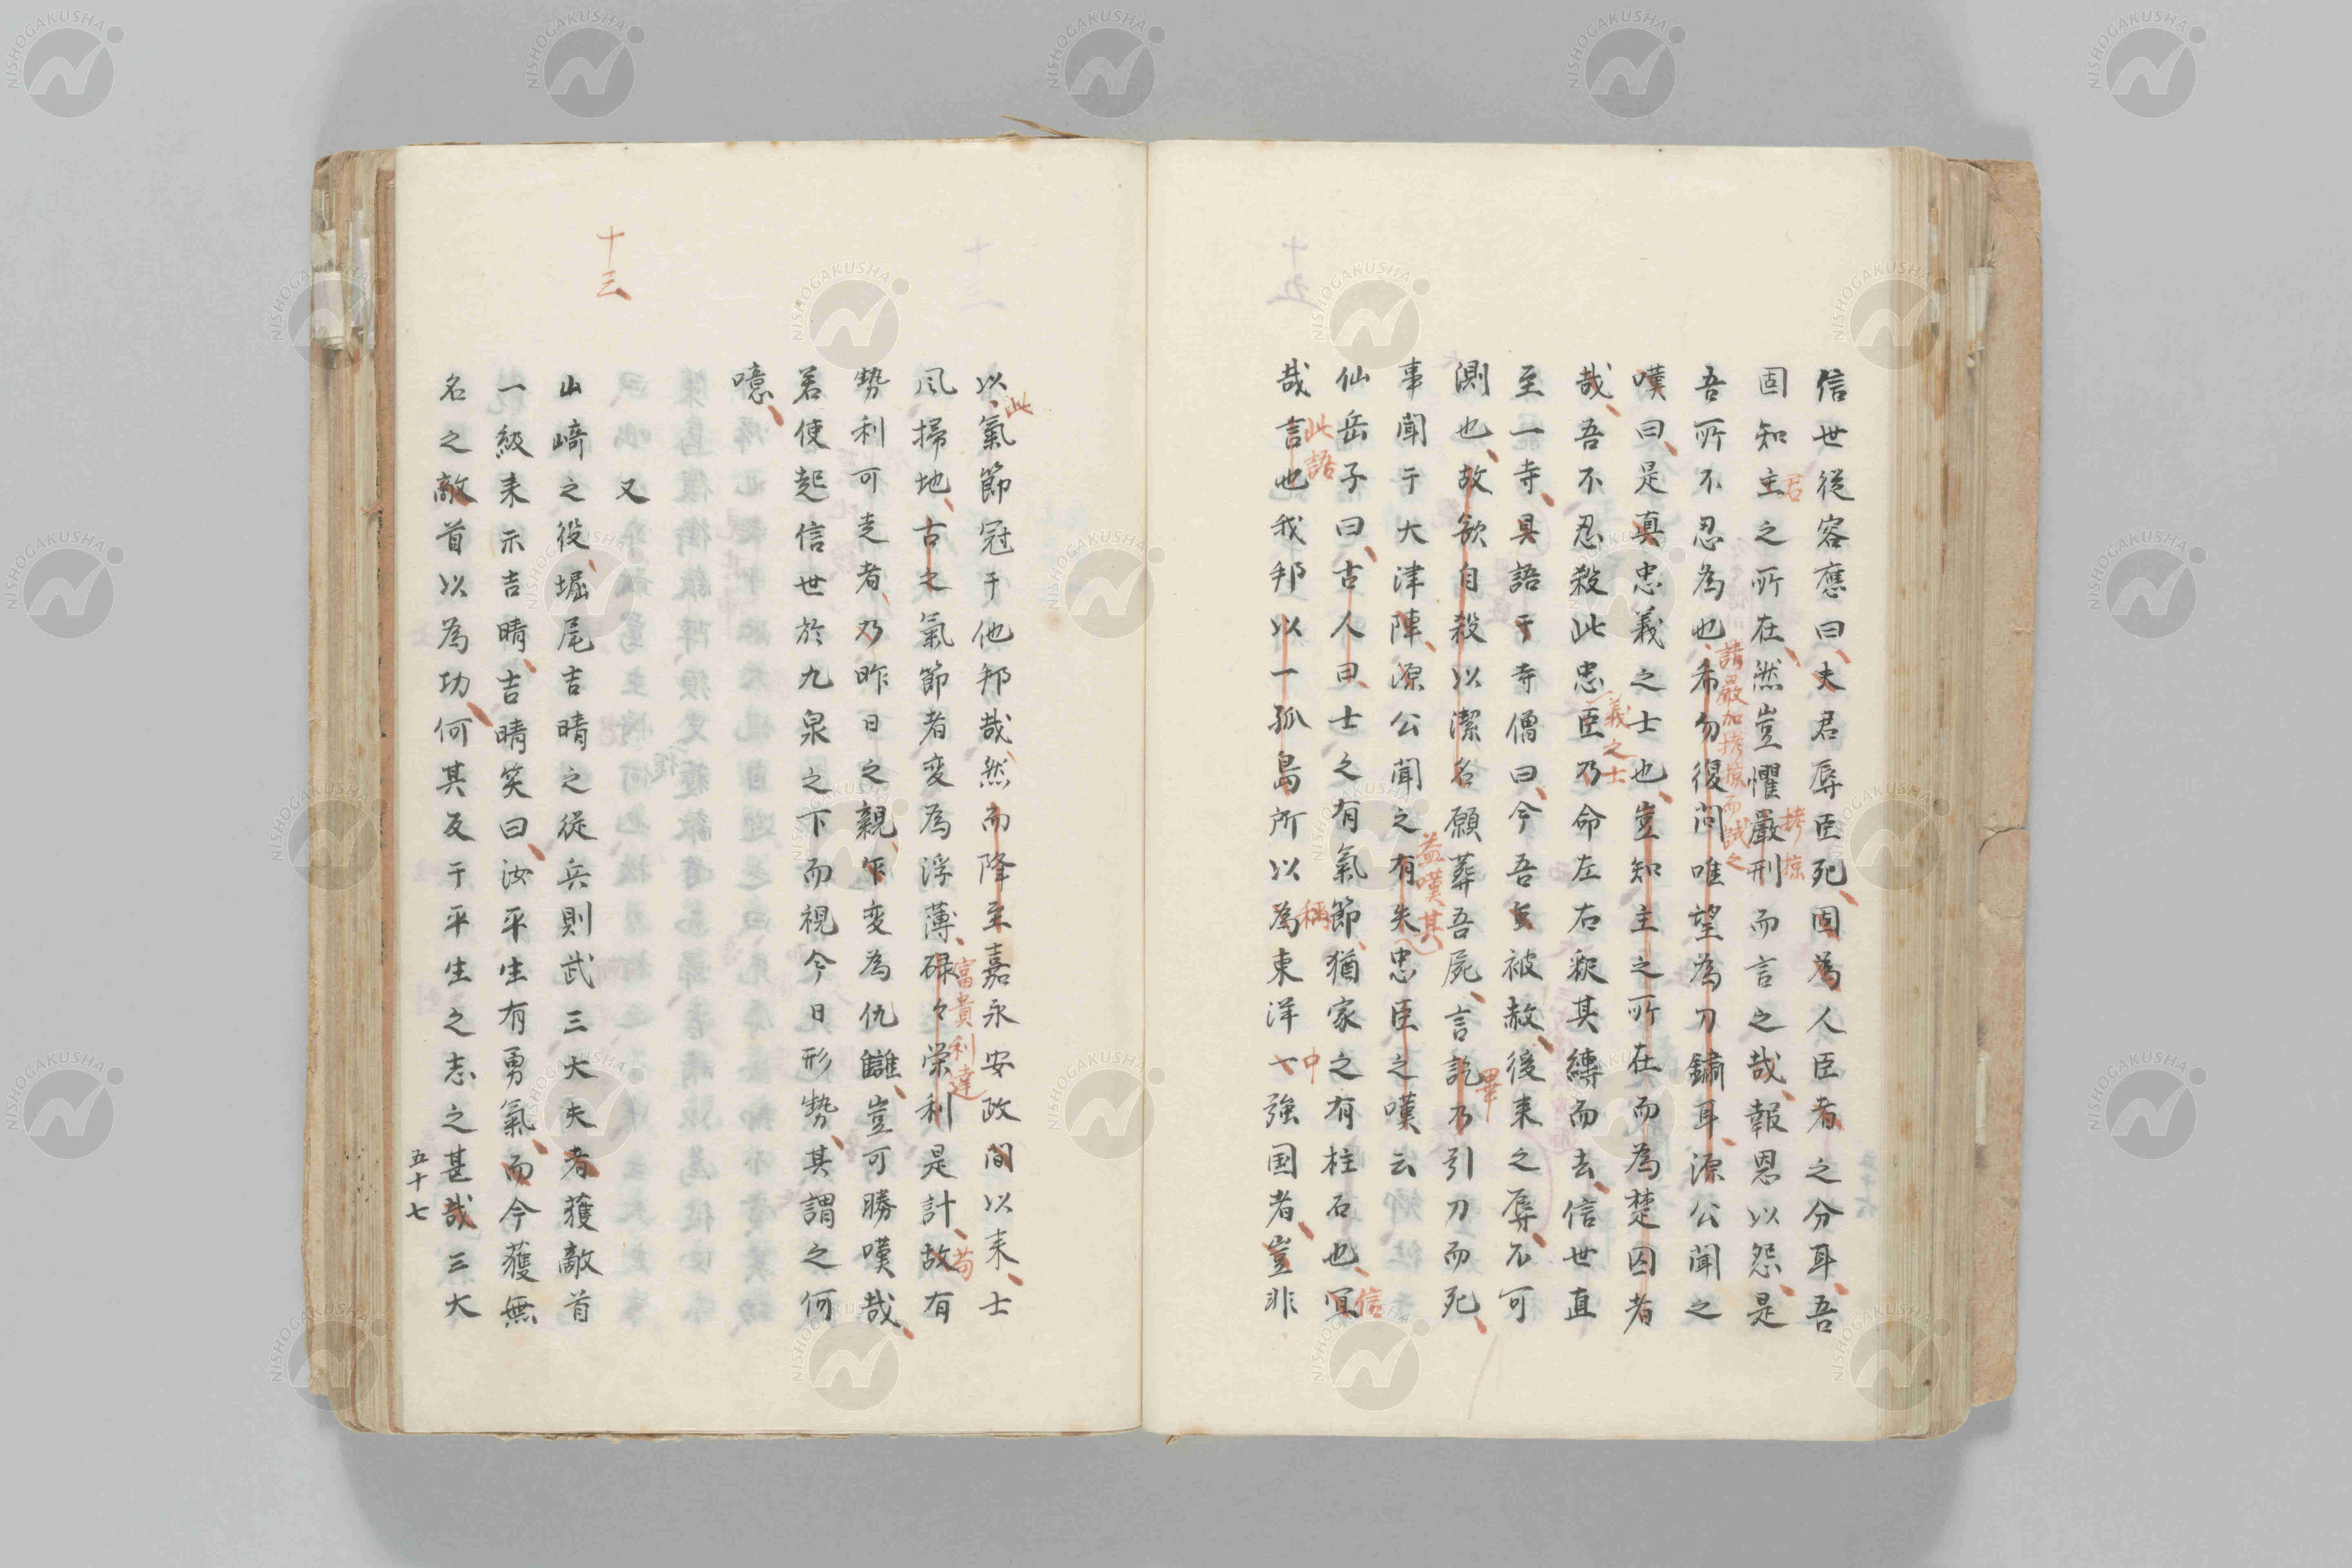 信世從容應曰夫君辱臣死固為人臣者之分耳吾
固知主之所在然豈懼嚴刑而言之哉報恩以怨是
君
拷掠
吾所不忍為也希勿復問唯望為刀鏽耳源公聞之
請嚴加拷掠而試之
嘆曰是真忠義之士也豈知主之所在而為楚囚者
哉吾不忍殺此忠臣乃命左右釈其縛而去信世直
義之士
至一寺具語于寺僧曰今吾被赦後来之辱不可
測也故欲自殺以潔名願葬吾屍言訖乃引刀而死
畢
事聞于大津陣源公聞之有失忠臣之嘆云
益嘆其
仙岳子曰古人曰士之有氣節猶家之有柱石也冝
信
哉言也我邦以一孤島所以為東洋一強国者豈非
此語
稱
中
以氣節冠于他邦哉然而降至嘉永安政間以来士
此
風掃地古之氣節者変為浮薄碌々栄利是計故有
富貴利達
苟
勢利可走者乃昨日之親乍変為仇讎豈可勝嘆哉
若使起信世於九泉之下而視今日形勢其謂之何
噫
十三
又
山崎之役堀尾吉晴之従兵則武三大夫者獲敵首
一級来示吉晴吉晴笑曰汝平生有勇氣而今獲無
名之敵首以為功何其反于平生之志之甚哉三大
五十七
NISHOGAKUSHA